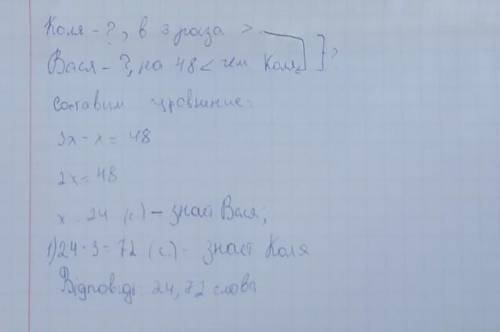 Коля - ?, в 3 раза >
Вася - ?, на 48 < чем Коля ?
Составим уровнение:
3х - х = 48
2х = 48
х = 24 (с) - знает Вася;
1) 24 · 3 = 72 (с.) - знает Коля
Відповідь: 24, 72 слова